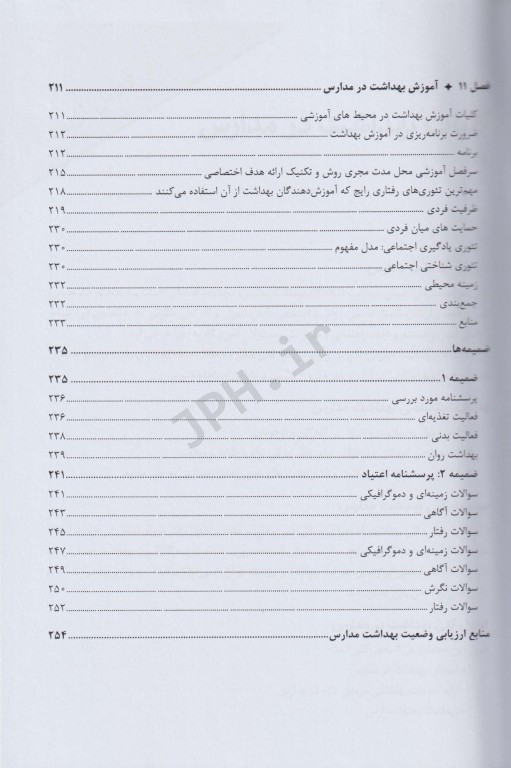 فصل ۱۱ ✦ آموزش بهداشت در مدارس ........ ۲۱۱
کلیات آموزش بهداشت در محیط های آموزشی ........ ۲۱۱
ضرورت برنامه‌ریزی در آموزش بهداشت ........ ۲۱۲
برنامه ........ ۲۱۲
سرفصل آموزشی محل مدت مجری روش و تکنیک ارائه هدف اختصاصی ........ ۲۱۵
مهم‌ترین تئوری‌های رفتاری رایج که آموزش‌دهندگان بهداشت از آن استفاده می‌کنند ........ ۲۱۸
ظرفیت فردی ........ ۲۱۹
حمایت های میان فردی ........ ۲۳۰
تئوری یادگیری اجتماعی: مدل مفهوم ........ ۲۳۰
تئوری شناختی اجتماعی ........ ۲۳۰
زمینه محیطی ........ ۲۳۲
جمع‌بندی ........ ۲۳۲
منابع ........ ۲۳۳
ضمیمه‌ها ........ ۲۳۵
ضمیمه ۱ ........ ۲۳۵
پرسشنامه مورد بررسی ........ ۲۳۶
فعالیت تغذیه‌ای ........ ۲۳۶
فعالیت بدنی ........ ۲۳۸
بهداشت روان ........ ۲۳۹
ضمیمه ۲: پرسشنامه اعتیاد ........ ۲۴۱
سوالات زمینه‌ای و دموگرافیکی ........ ۲۴۱
سوالات آگاهی ........ ۲۴۳
سوالات رفتار ........ ۲۴۵
سوالات زمینه‌ای و دموگرافیکی ........ ۲۴۷
سوالات آگاهی ........ ۲۴۹
سوالات نگرش ........ ۲۵۰
سوالات رفتار ........ ۲۵۲
منابع ارزیابی وضعیت بهداشت مدارس ........ ۲۵۴
JPH.ir